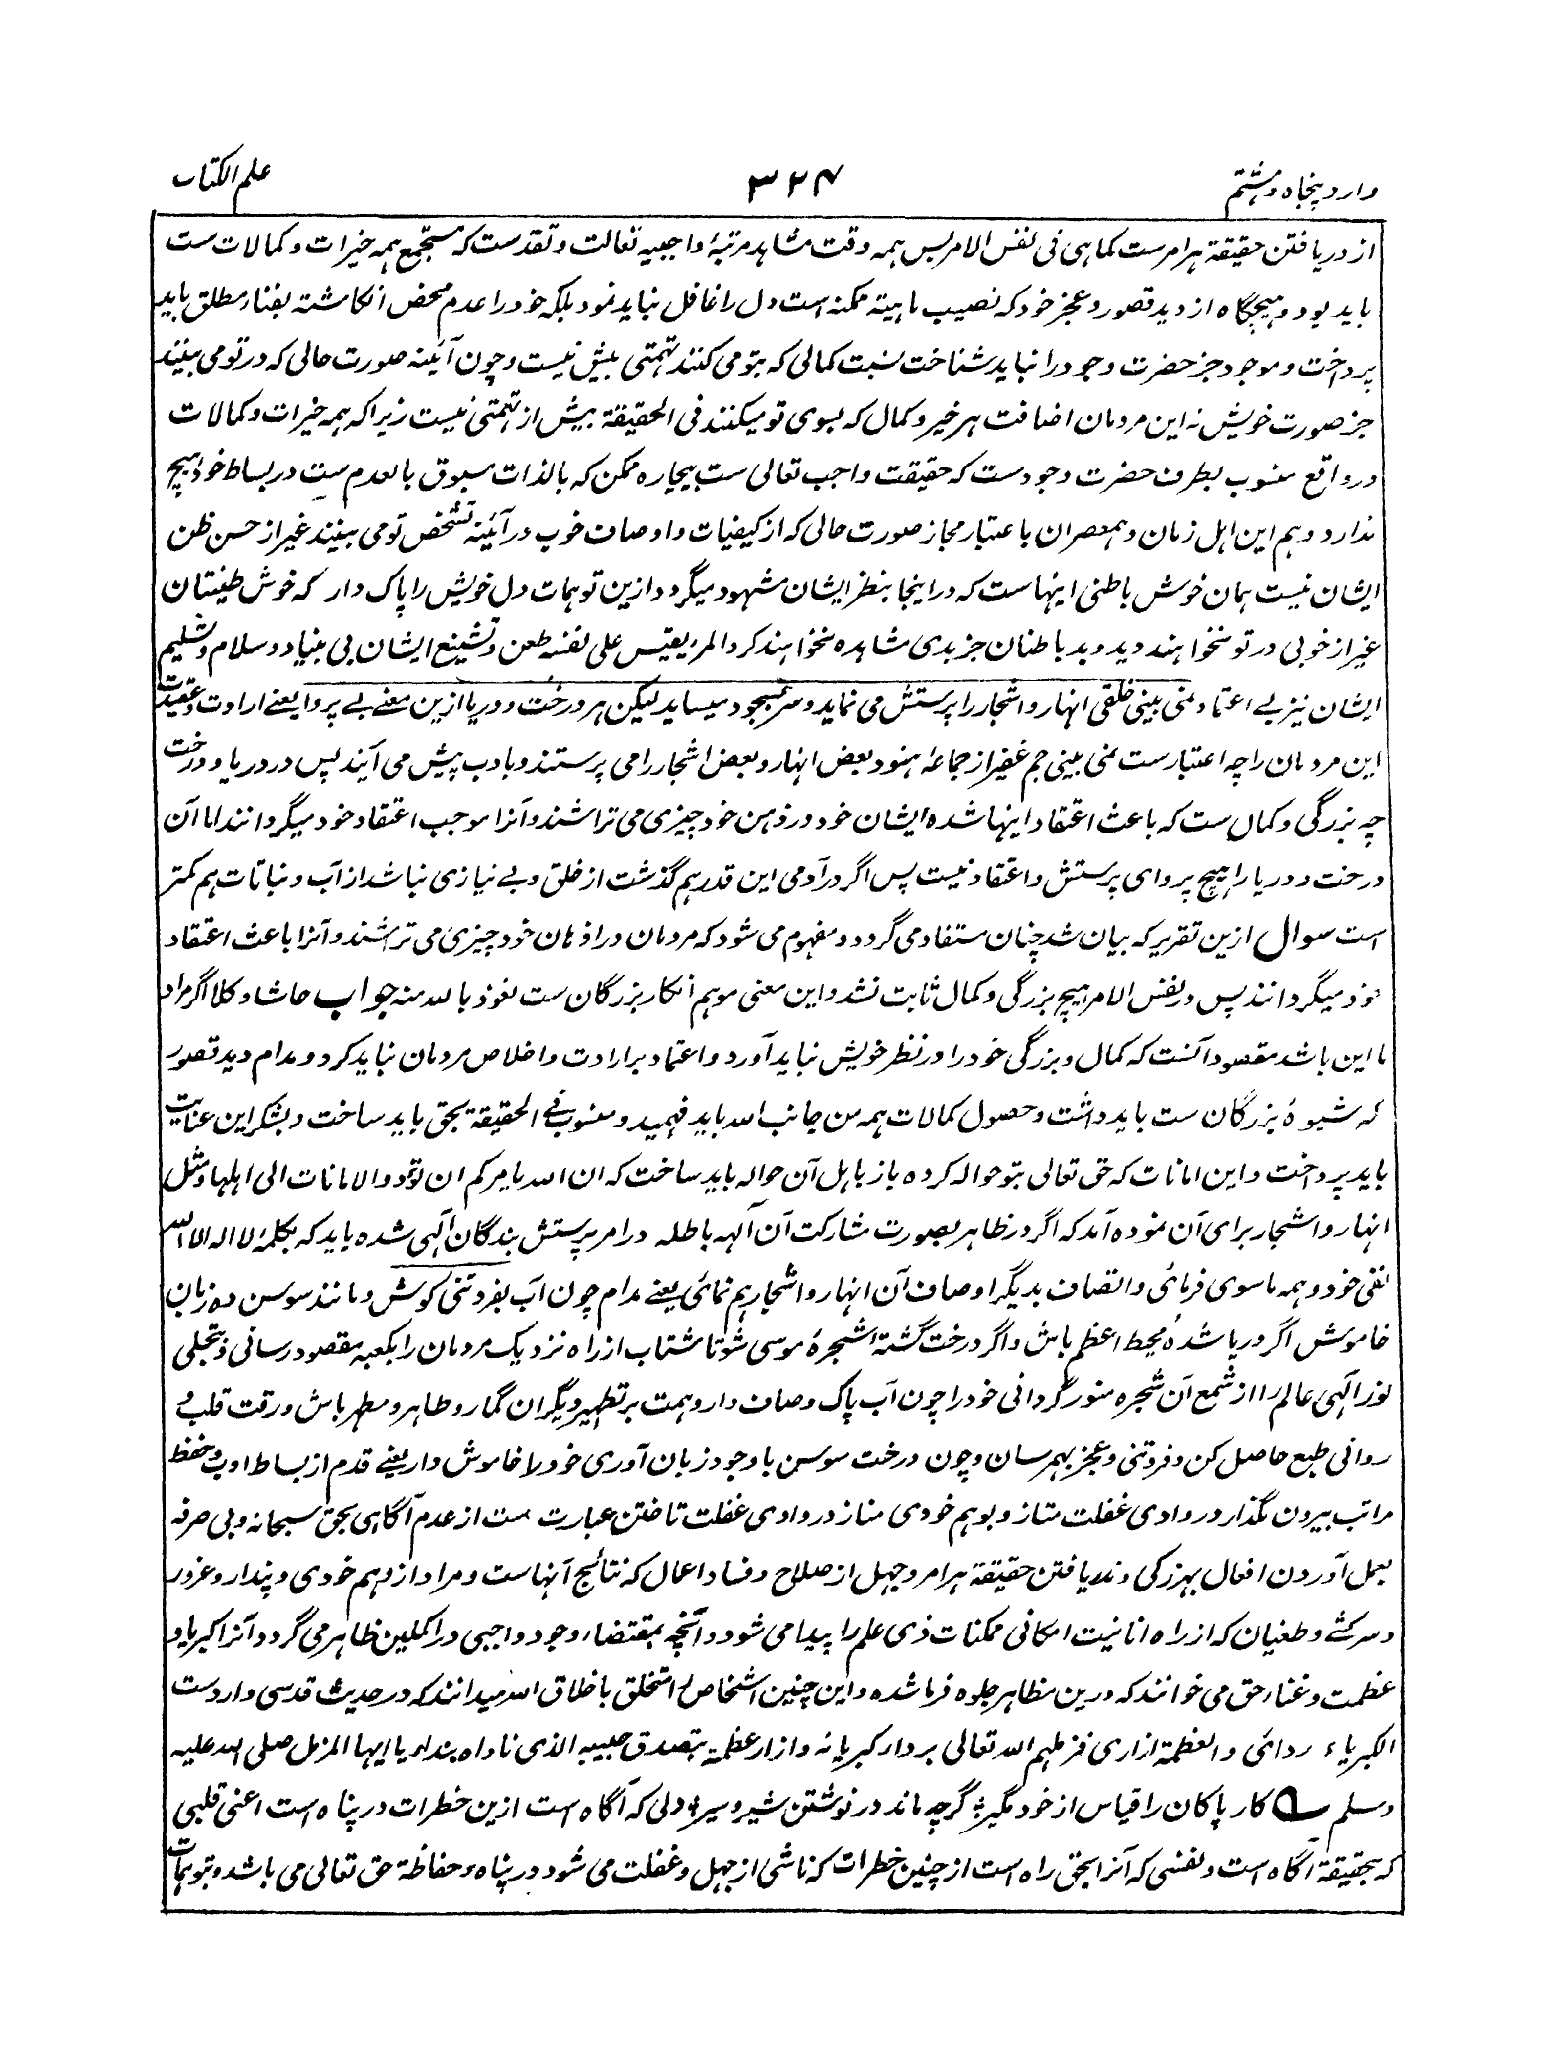 وارد پنجاه و هشتم
۳۲۴
علم الکتاب
از دریافتن حقیقة هر امرست کما هی فی نفس الامر پس همه وقت مشاهد مرتبۀ واجبیه تعالت و تقدست که مستجمع همه خیرات و کمالات ست
باید بود و هیچگاه از دید قصور و عجز خود که نصیب ماهیة ممکنه است دل را غافل نباید نمود بلکه خود را عدم محض انگاشته بفناء مطلق باید
پرداخت و موجود جز حضرت وجود را نباید شناخت نسبت کمالی که بتو می کنند تهمتی بیش نیست و چون آئینه صورت حالی که در تو می بینند
جز صورت خویش نه این مردمان اضافت هر خیر و کمال که بسوی تو میکنند فی الحقیقة بیش از تهمتی نیست زیراکه همه خیرات و کمالات
در واقع منسوب بطرف حضرت وجودست که حقیقت واجب تعالی ست بیچاره ممکن که بالذات مسبوق بالعدم ست در بساط خود هیچ
ندارد و هم این اهل زمان و همعصران باعتبار مجاز صورت حالی که از کیفیات و اوصاف خوب در آئینۀ تشخص تو می بینند غیر از حسن ظن
ایشان نیست همان خوش باطنی اینهاست که در اینجا بنظر ایشان مشهود میگردد ازین توهمات دل خویش را پاک دار که خوش طینتان
غیر از خوبی در تو نخواهند دید و بد باطنان جز بدی مشاهده نخواهند کرد المرء یقیس علی نفسه طعن و تشنیع ایشان بی بنیاد و سلام و تسلیم
ایشان نیز بے اعتماد نمی بینی خلقی انهار و اشجار را پرستش می نماید و سر بسجود میساید لیکن هر درخت و دریا ازین معنے بے پروا یعنے ارادت و عقیدت
این مردمان را چه اعتبارست نمی بینی جم غفیر از جماعۀ هنود بعض انهار و بعض اشجار را می پرستند و بادب پیش می آیند پس در دریا و درخت
چه بزرگی و کمال ست که باعث اعتقاد اینها شده ایشان خود در ذهن خود چیزی می تراشند و آنرا موجب اعتقاد خود میگردانند اما آن
درخت و دریا را هیچ پروای پرستش و اعتقاد نیست پس اگر در آدمی این قدر هم گذشت از خلق و بے نیازی نباشد از آب و نباتات هم کمتر
است سوال ازین تقریر که بیان شد چنان مستفاد می گردد و مفهوم می شود که مردمان در اذهان خود چیزی می تراشند و آنرا باعث اعتقاد
خود میگردانند پس در نفس الامر هیچ بزرگی و کمال ثابت نشد و این معنی موهم انکار بزرگان ست نعوذ بالله منه جواب حاشا و کلا اگر مراد
ما این باشد مقصود آنست که کمال و بزرگی خود را در نظر خویش نباید آورد و اعتماد بر ارادت و اخلاص مردمان نباید کرد و مدام دید قصور
که شیوۀ بزرگان ست باید داشت و حصول کمالات همه من جانب الله باید فهمید و منسوب فے الحقیقة بحق باید ساخت و بشکر این عنایت
باید پرداخت و این امانات که حق تعالی بتو حواله کرده باز باهل آن حواله باید ساخت که ان الله یامرکم ان تؤدوا الامانات الی اهلها و مثل
انهار و اشجار برای آن نموده آمد که اگر در ظاهر بصورت مشارکت آن آلهه باطله در امر پرستش بندگان آلهی شده باید که بکلمۀ لا اله الا الله
نفی خود و همه ماسوی فرمائی و اتصاف بدیگر اوصاف آن انهار و اشجار هم نمائی یعنے مدام چون آب بفروتنی کوش و مانند سوسن ده زبان
خاموش اگر دریا شدۀ محیط اعظم باش و اگر درخت گشتۀ شجرۀ موسی شو تا شتاب از راه نزدیک مردمان را بکعبه مقصود رسانی و بتجلی
نور آلهی عالم را از شمع آن شجره منور گردانی خود را چون آب پاک و صاف دار و همت بر تطهیر دیگران گمار و طاهر و مطهر باش و رقت قلب و
روانی طبع حاصل کن و فروتنی و عجز بهم رسان و چون درخت سوسن باوجود زبان آوری خود را خاموش دار یعنے قدم از بساط ادب و حفظ
مراتب بیرون مگذار در وادی غفلت متاز و بوهم خودی مناز در وادی غفلت تاختن عبارت ست از عدم آگاهی بحق سبحانه و بی صرفه
بعمل آوردن افعال بهرزگی و ندریافتن حقیقة هر امر و جهل از صلاح و فساد اعمال که نتائج آنهاست و مراد از وهم خودی و پندار و غرور
و سرکشے و طغیان که از راه انانیت امکانی ممکنات ذی علم را پیدا می شود و آنچه بمقتضاء وجود واجبی در اکملین ظاهر می گردد و آنرا کبریا و
عظمت و غناء حق می خوانند که درین مظاهر جلوه فرما شده و این چنین اشخاص را متخلق باخلاق الله میدانند که در حدیث قدسی واردست
الکبریاء ردائی و العظمة ازاری فزملهم الله تعالی برداء کبریائه و ازار عظمة بتصدق حبیبه الذی ناداه بنداء یا ایها المزمل صلی الله علیه
وسلم کار پاکان را قیاس از خود مگیر ؛ گرچه ماند در نوشتن شیر و شیر ؛ دلی که آگاه است ازین خطرات در پناه است اعنی قلبی
که بحقیقة آگاه است و نفسی که آنرا بحق راه است از چنین خطرات که ناشی از جهل و غفلت می شود در پناه و حفاظة حق تعالی می باشد و بتوهمات